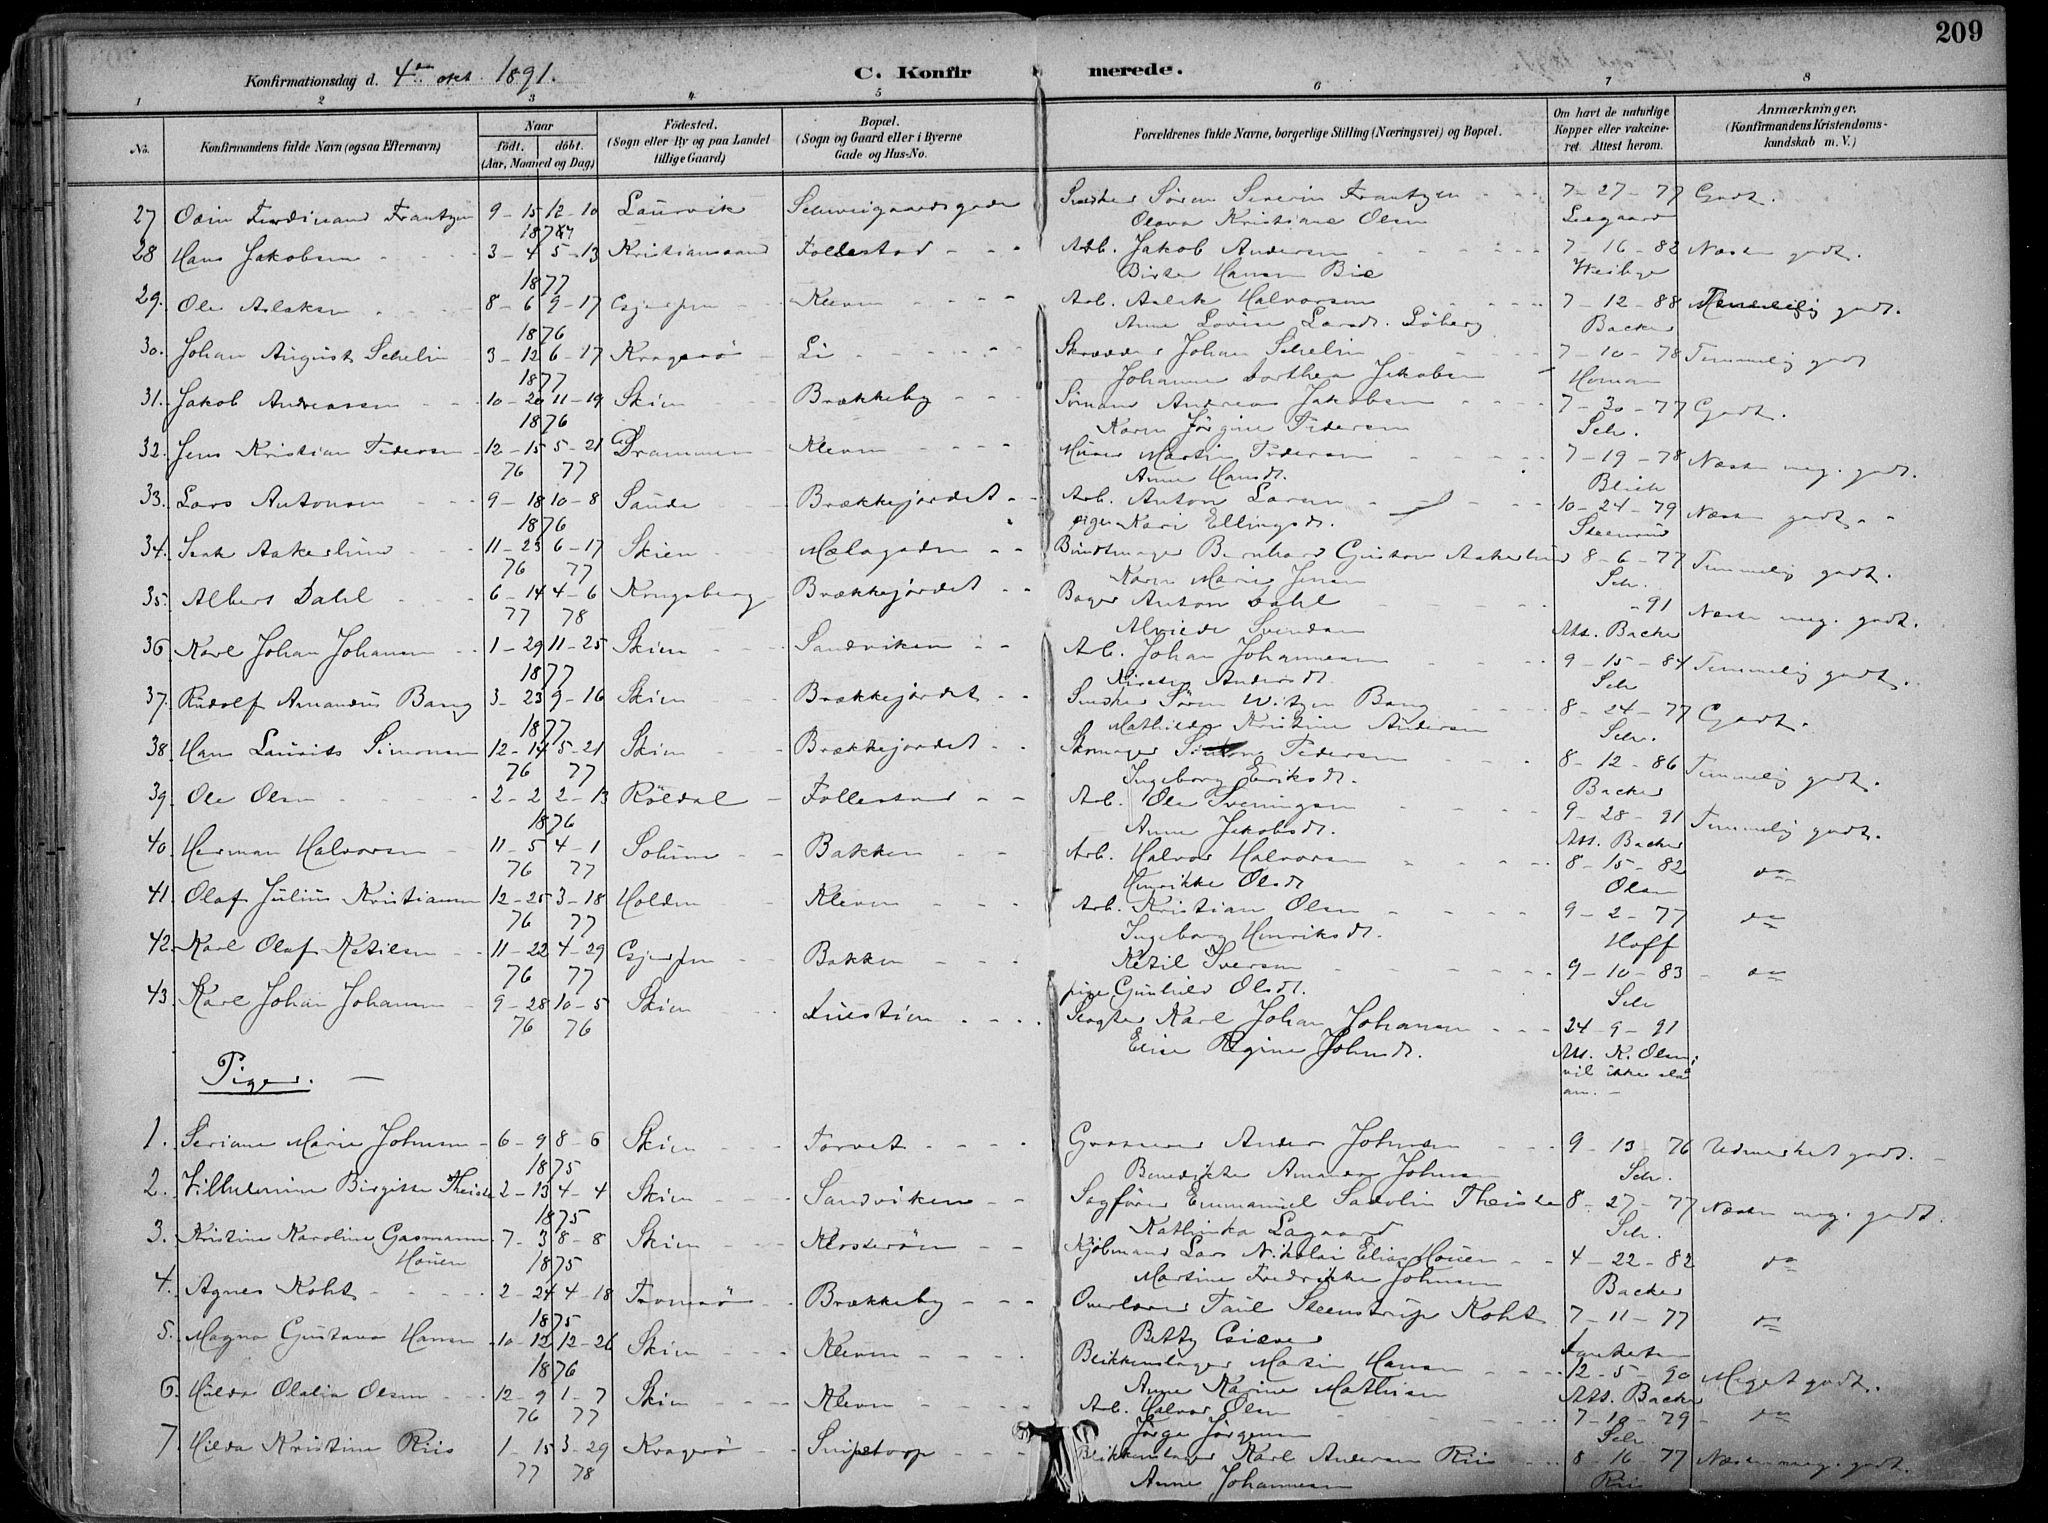 209
Konfirmationsdag d. 4de okt. 1891. C. Konfirmerede.
1 2 3 4 5 6 7 8
No. Konfirmandens fulde Navn (ogsaa Efternavn) Naar födt. döbt. (Aar, Maaned og Dag) Födested. (Sogn eller By og paa Landet tillige Gaard) Bopæl. (Sogn og Gaard eller i Byerne Gade og Hus-No. Forældrenes fulde Navne, borgerlige Stilling (Næringsvei) og Bopæl. Om havt de naturlige Kopper eller vakcineret. Attest herom. Anmærkninger. (Konfirmandens Kristendomskundskab m. V.)
27 Odin Ferdinand Frantzen 9-15 12-10 Laurvik Schweigaardsgade Søren Severin Frantzen 7-27-77 Godt.
Olava Kristiane Olsen
28 Hans Jakobsen 3-4 5-13 Kristiansand Follestad Arb. Jakob Andersen 7-16-82 Næsten godt.
1877 Birte Hansen Bie
29. Ole Aslaksen 8-6 9-17 Gjerpen Kleven Arb. Aslak Halvorsen 7-12-88 Temmelig godt.
1876 Anne Lovise Larsdt. Backer
30. Johan August Schelin 3-12 6-17 Kragerø Li Skrædder Johan Schelin 7-10-78 Temmelig godt
1877 Johanne Dorthea Jakobsen Homan
31. Jakob Andreassen 10-20 11-19 Skien Brækkeby Sömand Andreas Jakobsen 7-30-77 Godt.
1876 Karen Jörgine Pedersen Sch.
32. Jens Kristian Pedersen 12-15 5-21 Drammen Kleven Murer Martin Pedersen 7-19-78 Næsten meg. godt.
76 77 Anne Hansdt. Blich
33. Lars Antonsen 9-18 10-8 Saude Brækkejordet Arb. Anton Larsen 10-24-79 Næsten godt
1876 pige Kari Ellingsdt.
34. Aakerlund 11-23 6-17 Skien Mælagaden Bundtmager Bernhard Gustav Aakerlund 8-6-77 Temmelig godt.
76 77 Karen Marie Jensen Sch.
35. Albert Dahl 6-14 4-6 Kongsberg Brækkejordet Bager Anton Dahl -91 Næsten meg. godt.
77 78 Svendsen Att. Backer
36. Karl Johan Johansen 1-29 11-25 Skien Sandviken Arb. Johan Johannesen 9-15-84 Temmelig godt.
1877 Kirsten Andersdt. Sch
37. Rudolf Amandus Bang 3-23 9-16 Skien Brækkejordet Snedker Søren Bang 8-24-77 Godt.
1877 Mathilde Kristine Andersen Sch.
38. Hans Laurits Simonsen 12-14 5-21 Skien Brækkejordet Skomager Simon Pedersen 8-12-86 Temmelig godt.
76 77 Ingeborg Eriksdt. Backer
39. Ole Olsen 2-2 2-13 Röldal Follestad Arb. Ole Sveningsen 9-28-91 Temmelig godt.
1876 Anne Jakobsdt. Att. Backer
40. Herman Halvorsen 11-5 4-1 Solum Bakken Arb. Halvor Halvorsen 8-15-82 do
76 77 Henrikke Olsdt Olsen
41. Olaf Julius Kristiansen 12-25 3-18 Holden Kleven Arb. Kristian Olsen 9-2-77 do
76 77 Ingeborg Henriksdt. Hoff
42. Karl Olaf Ketilsen 11-22 4-29 Gjerpen Bakken Ketil Iversen 9-10-83 do
76 77 pige Gunhild Olsdt. Sch
43. Karl Johan Johansen 9-28 10-5 Skien Slagter Karl Johan Johansen 24-9-91
76 76 Elise Regine Johnsdt. Att. K. Olsen;
vil ikke slå an.
Piger.
1. Seriane Marie Johnsen 6-9 8-6 Skien Torvet Anders Johnsen 9-13-76 Udmerket godt.
1875 Benedikte Amanda Johnsen Sch.
2. Vilhelmine Birgitte Theiste 2-13 4-4 Skien Sandviken Sagförer Emmanuel Sadolin Theiste 8-27-77 Næsten meg. godt.
1875 Kathinka Sch.
3. Kristine Karoline Gasmann Houen 7-3 8-8 Skien Klosterøen Kjöbmand Lars Nikolai Elias Houen 4-22-82 do
1875 Martine Fredrikke Johnsen Backer
4. Agnes Koht 2-24 4-18 Tromsø Brækkeby Overlærer Paul Steenstrup Koht 7-11-77 do
1875 Betty Giæver
5. Magna Gustava Hansen 10-12 12-26 Skien Kleven Blikkenslager Martin Hansen 12-5-90 Meget godt.
1876 Anne Karine Mathisen Att. Backer
6. Hilda Olalia Olsen 12-9 1-7 Skien Kleven Arb. Halvor Olsen 7-10-79 do
76 77 Jörgensen Sch.
7. Hilda Kristine Riis 1-15 3-29 Kragerø Snipetorp Blikkenslager Karl Andersen Riis 8-16-77 Næsten meg. godt.
77 78 Anne Johannesen Riis